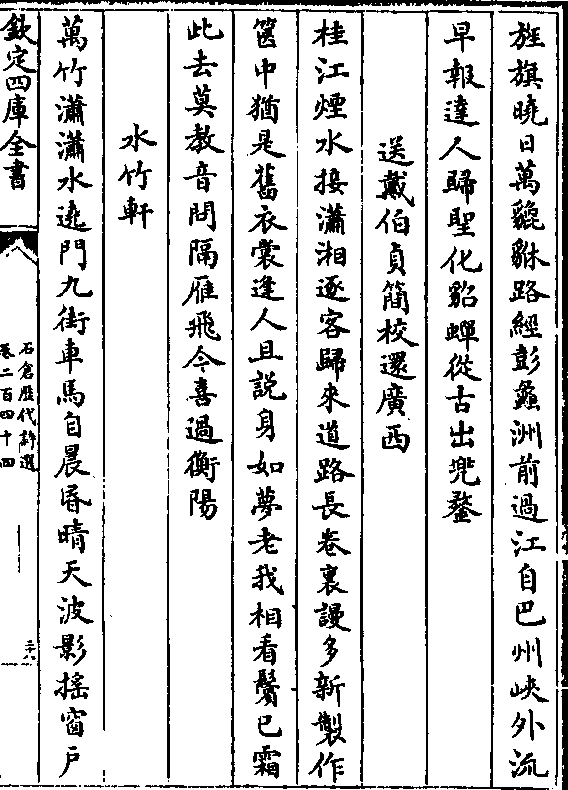 旌旗曉日萬貔貅路經彭蠡洲前過江自巴州峽外流
早報達人歸聖化貂蟬從古出兜鍪
送戴伯貞簡校還廣西
桂江煙水接瀟湘逐客歸來道路長卷裏謾多新製作
篋中猶是舊衣裳逢人且説身如夢老我相看鬢已霜
此去莫教音問隔雁飛今喜過衡陽
水竹軒
萬竹瀟瀟水遶門九街車馬自晨昏晴天波影搖窗戶
欽定四庫全書
石倉歴代詩選
卷二百四十四
二六